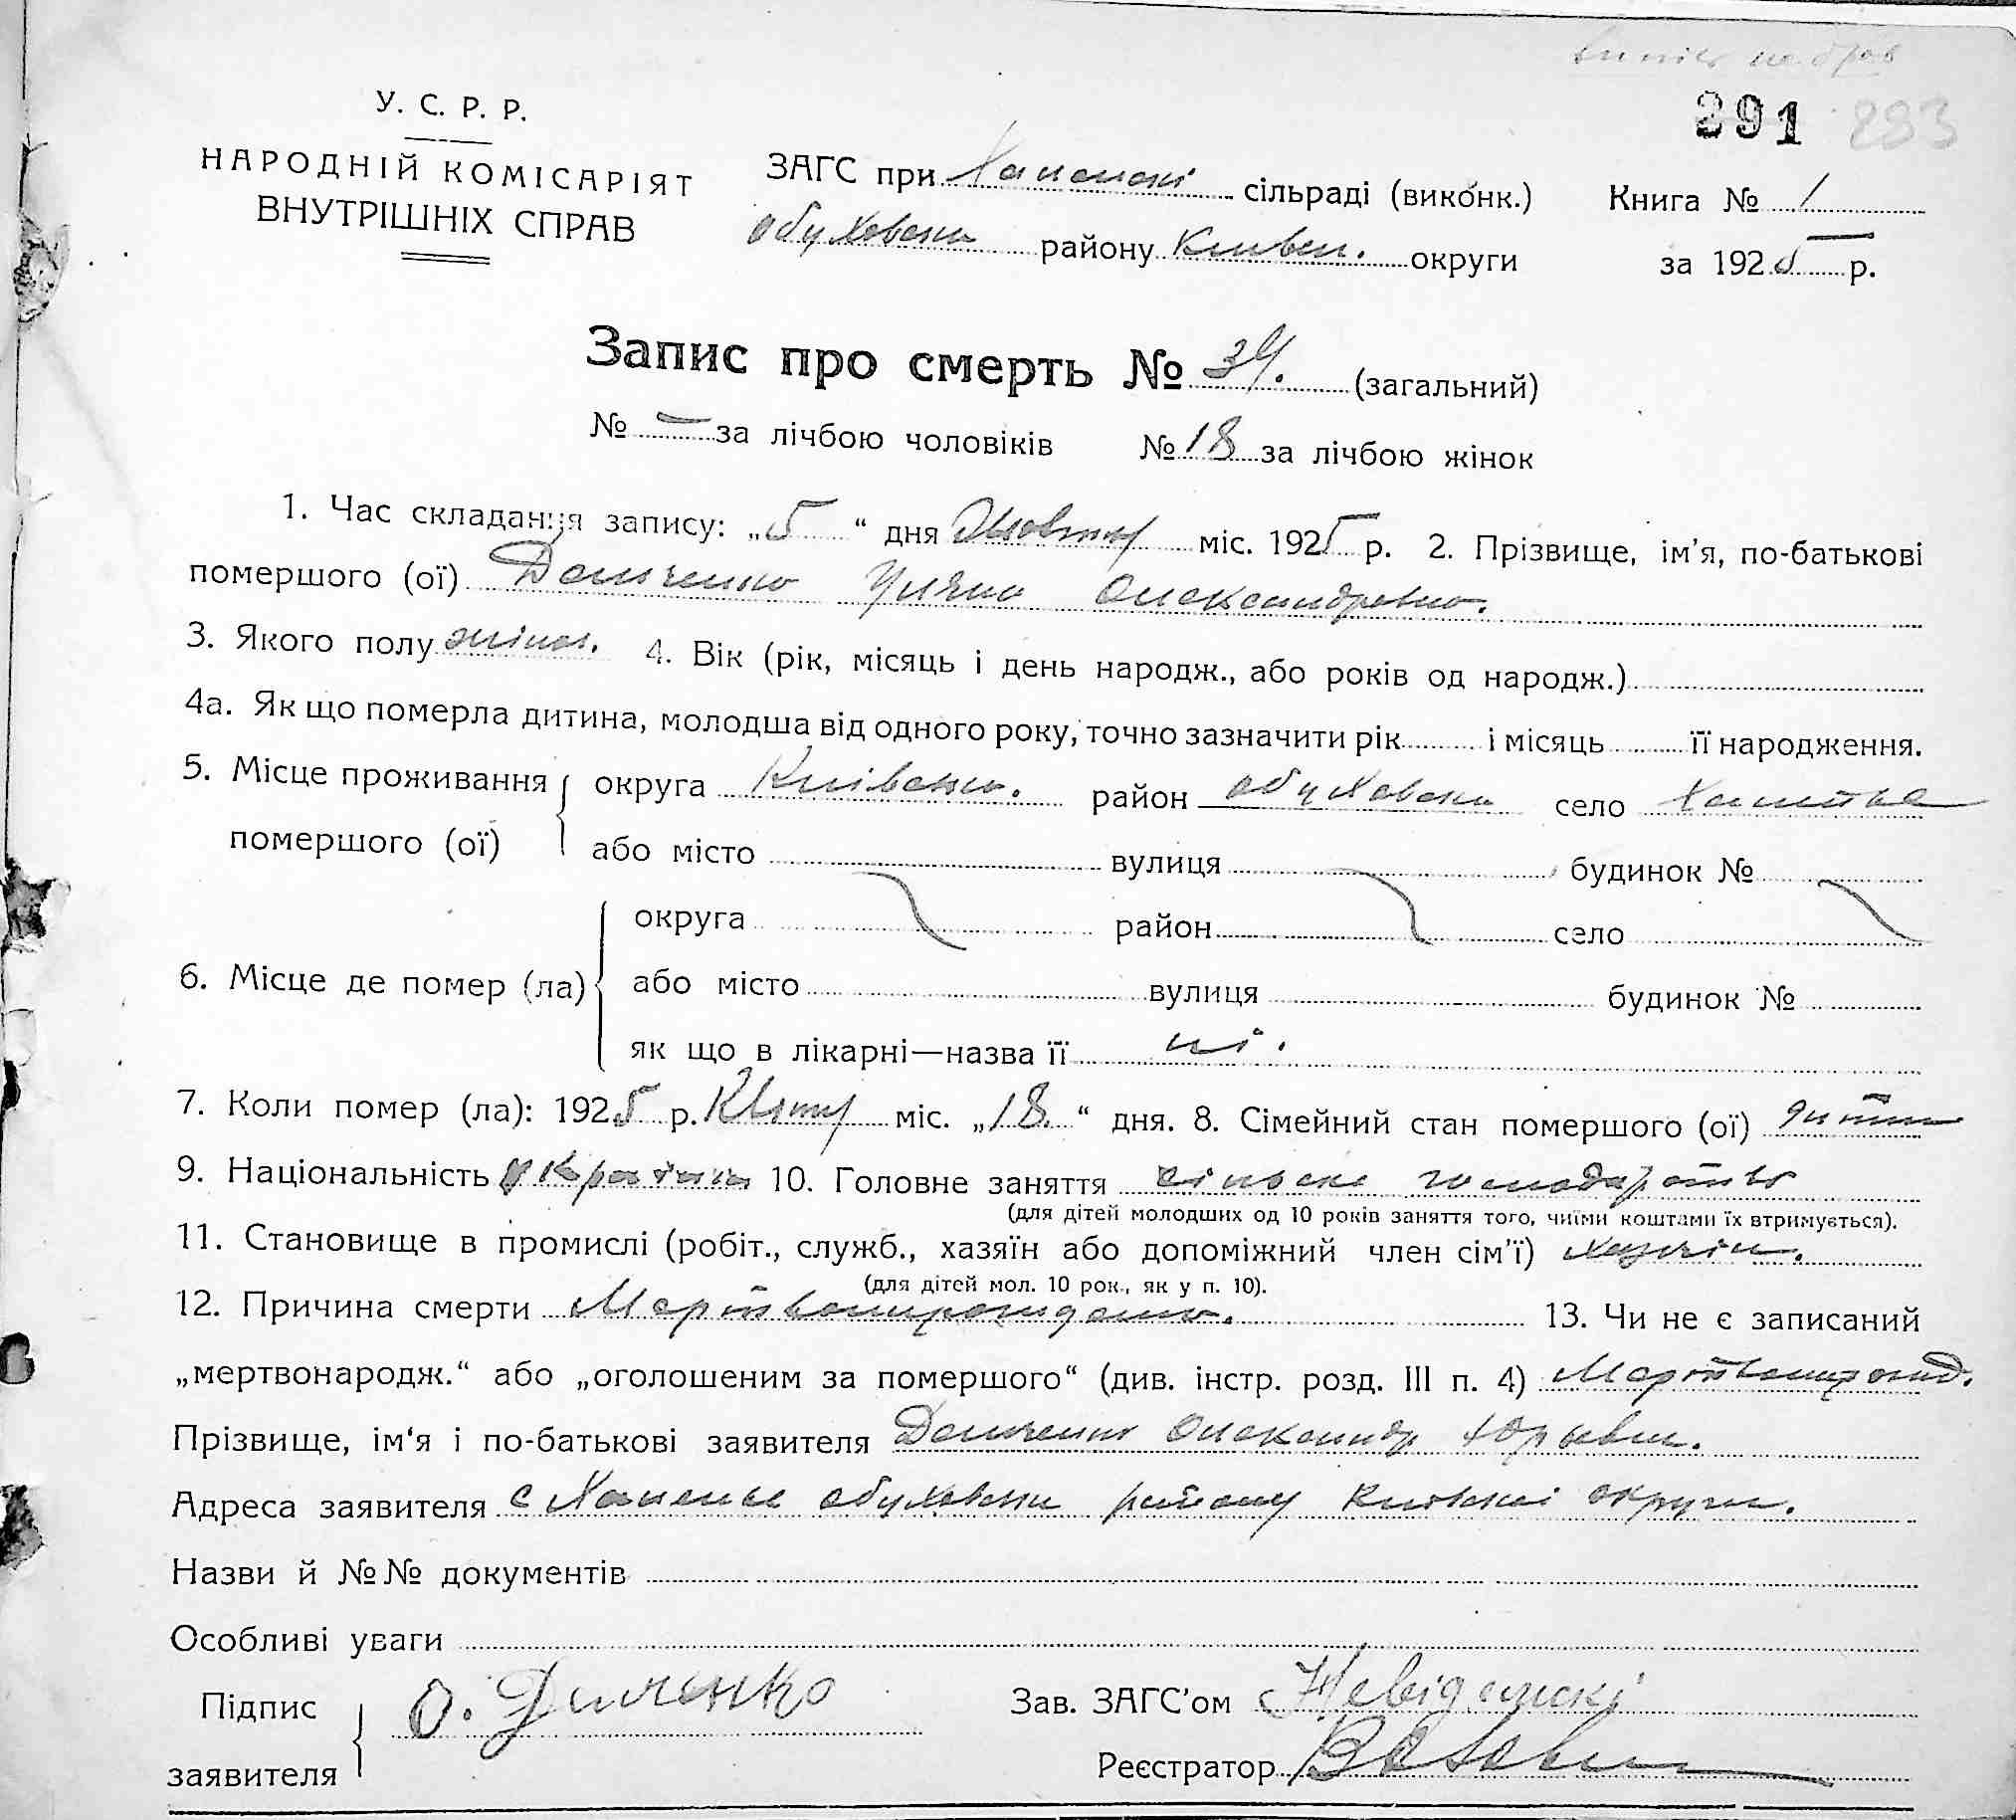 У. С. Р. Р.
НАРОДНІЙ КОМІСАРІЯТ
ВНУТРІШНІХ СПРАВ
291 283
ЗАГС при сільраді (виконк.) Книга № 1
Обуховськ району Київськ. округи за 1925 р.
Запис про смерть № 34. (загальний)
№ — за лічбою чоловіків № 18 за лічбою жінок
1. Час складання запису: „5“ дня Жовтня міс. 1925 р. 2. Прізвище, ім'я, по-батькові
помершого (ої) Олександровна.
3. Якого полу жіноч. 4. Вік (рік, місяць і день народж., або років од народж.)
4а. Як що померла дитина, молодша від одного року, точно зазначити рік і місяць її народження.
5. Місце проживання округа Київська. район Обуховськ село
помершого (ої) або місто вулиця будинок №
округа район село
6. Місце де помер (ла) або місто вулиця будинок №
як що в лікарні—назва її ні.
7. Коли помер (ла): 1925 р. міс. „18.“ дня. 8. Сімейний стан помершого (ої) дитина
9. Національність україн 10. Головне заняття сільське господарство
(для дітей молодших од 10 років заняття того, чиїми коштами їх втримується).
11. Становище в промислі (робіт., служб., хазяїн або допоміжний член сім'ї) хазяїн.
(для дітей мол. 10 рок., як у п. 10).
12. Причина смерти 13. Чи не є записаний
„мертвонародж.“ або „оголошеним за помершого“ (див. інстр. розд. III п. 4)
Прізвище, ім'я і по-батькові заявителя Олександр
Адреса заявителя с Обуховськ району Київської округи.
Назви й №№ документів
Особливі уваги
Підпис О. Зав. ЗАГС'ом
заявителя Реєстратор